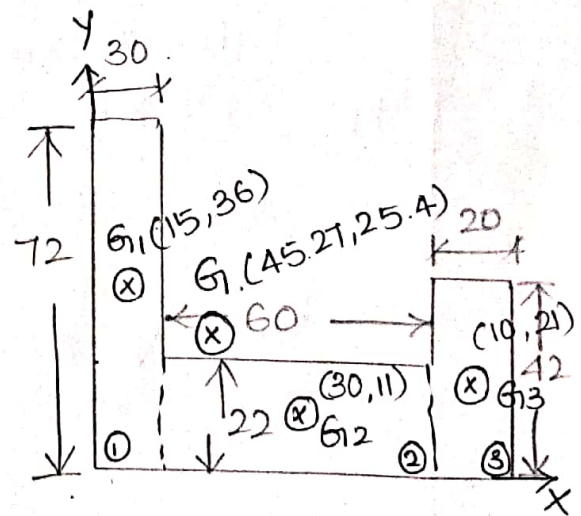 Y
30
72
G1(15,36)
G.(45.27,25.4)
20
60
(10,21)
42
(30,11)
G2
G3
22
1
2
3
X